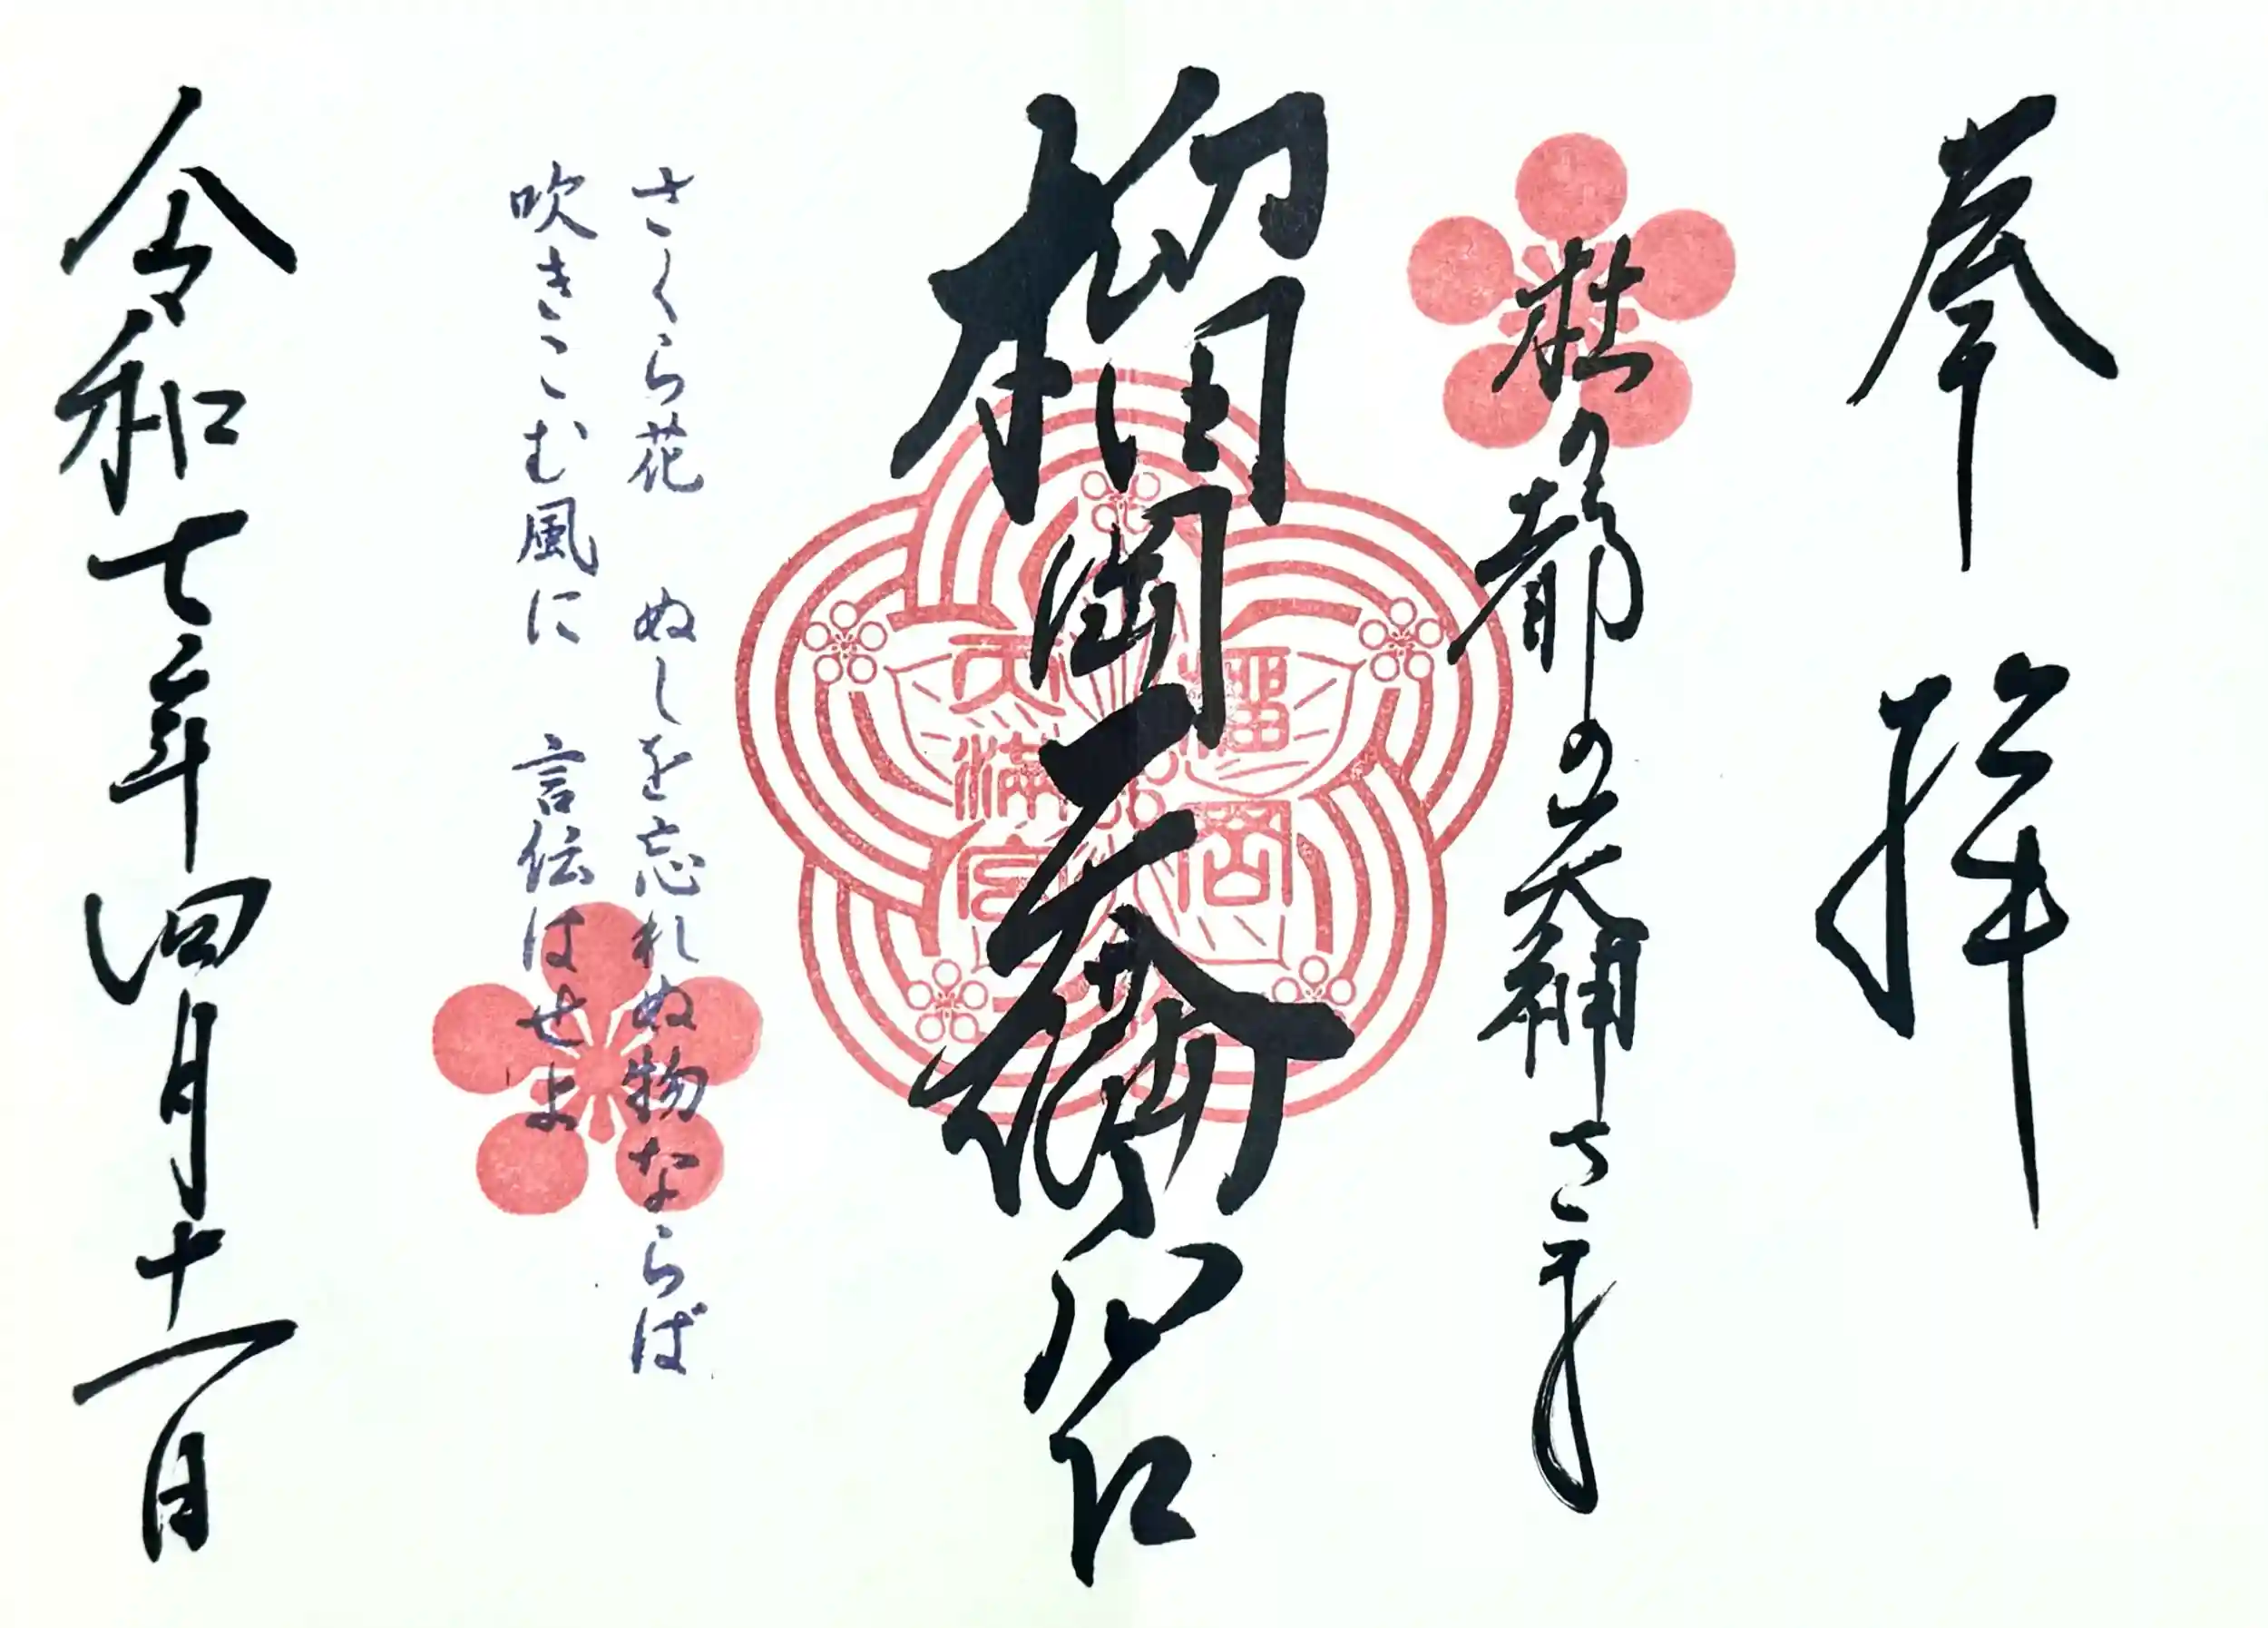 奉拝
杜の都の天神さま
榴岡天満宮
榴岡
天滿宮
さくら花　ぬしを忘れぬ物ならば
吹きこむ風に　言伝はせよ
令和七年四月十一日